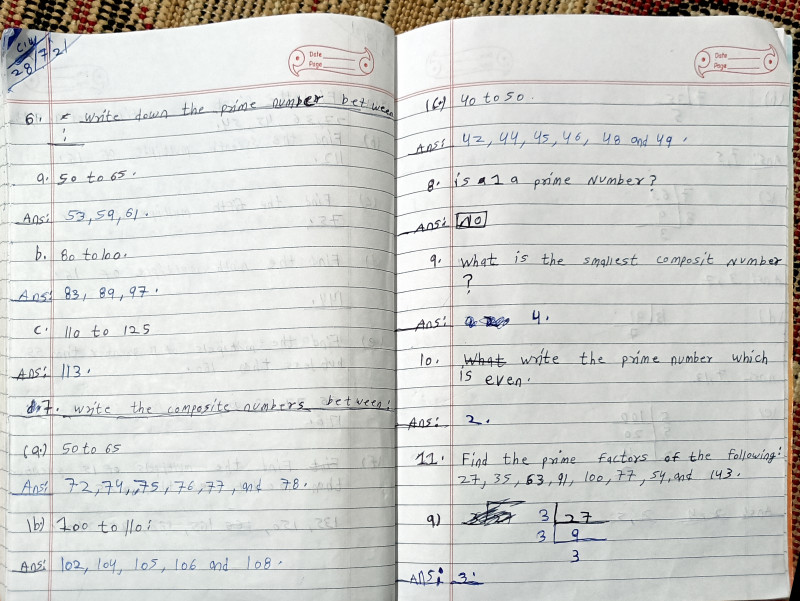 C.W
28/7/21
Date
Page
6. * Write down the prime number between
:
a. 50 to 65.
Ans: 53, 59, 61.
b. 80 to 100.
Ans: 83, 89, 97.
c. 110 to 125
Ans: 113.
7. Write the composite numbers between:
(a.) 50 to 65
Ans: 72, 74, 75, 76, 77, and 78.
(b) 100 to 110:
Ans: 102, 104, 105, 106 and 108.
Date
Page
(c) 40 to 50.
Ans: 42, 44, 45, 46, 48 and 49.
8. is 1 a prime Number?
Ans: No
9. What is the smallest composit Number
?
Ans: 4.
10. What write the prime number which
is even.
Ans: 2.
11. Find the prime factors of the following:
27, 35, 63, 91, 100, 77, 54, and 143.
a) 3 27
3 9
3
Ans: 3.